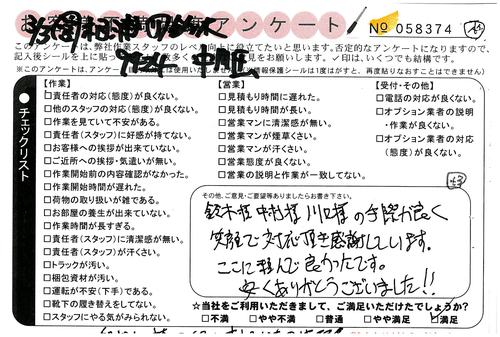 アンケート
No 058374
このアンケートは、弊社作業スタッフのレベル向上に役立てたいと思います。否定的なアンケートになりますので、
記入後シールを上に貼っ
見をお願いします。✓印は、いくつでも結構です。
チェックリスト
【作業】
□責任者の対応(態度)が良くない。
□他のスタッフの対応(態度)が良くない。
□作業を見ていて不安がある。
□責任者(スタッフ)に好感が持てない。
□お客様への挨拶が出来ていない。
□ご近所への挨拶・気遣いが無い。
□作業開始前の内容確認がなかった。
□作業開始時間が遅れた。
□荷物の取り扱いが雑である。
□お部屋の養生が出来ていない。
□作業時間が長すぎる。
□責任者(スタッフ)に清潔感が無い。
□責任者(スタッフ)が汗くさい。
□トラックが汚い。
□梱包資材が汚い。
□運転が不安(下手)である。
□靴下の履き替えをしてない。
□スタッフにやる気がみられない。
【営業】
□見積もり時間に遅れた。
□見積もり時間が長い。
□営業マンに清潔感が無い。
□営業マンが煙草くさい。
□営業マンが汗くさい。
□営業態度が良くない。
□営業の説明と作業が一致してない。
【受付・その他】
□電話の対応が良くない。
□オプション業者の説明
・作業が良くない。
□オプション業者の対応
(態度)が良くない。
その他、ご意見・ご要望等ありましたらお書き下さい。
鈴木様 中村様 川口様の手際が良く
笑顔で対応頂き感謝しています。
ここに頼んで良かったです。
ありがとうございました!!
☆当社をご利用いただきまして、ご満足いただけたでしょうか?
□不満 □やや不満 □普通 □やや満足 ☑満足